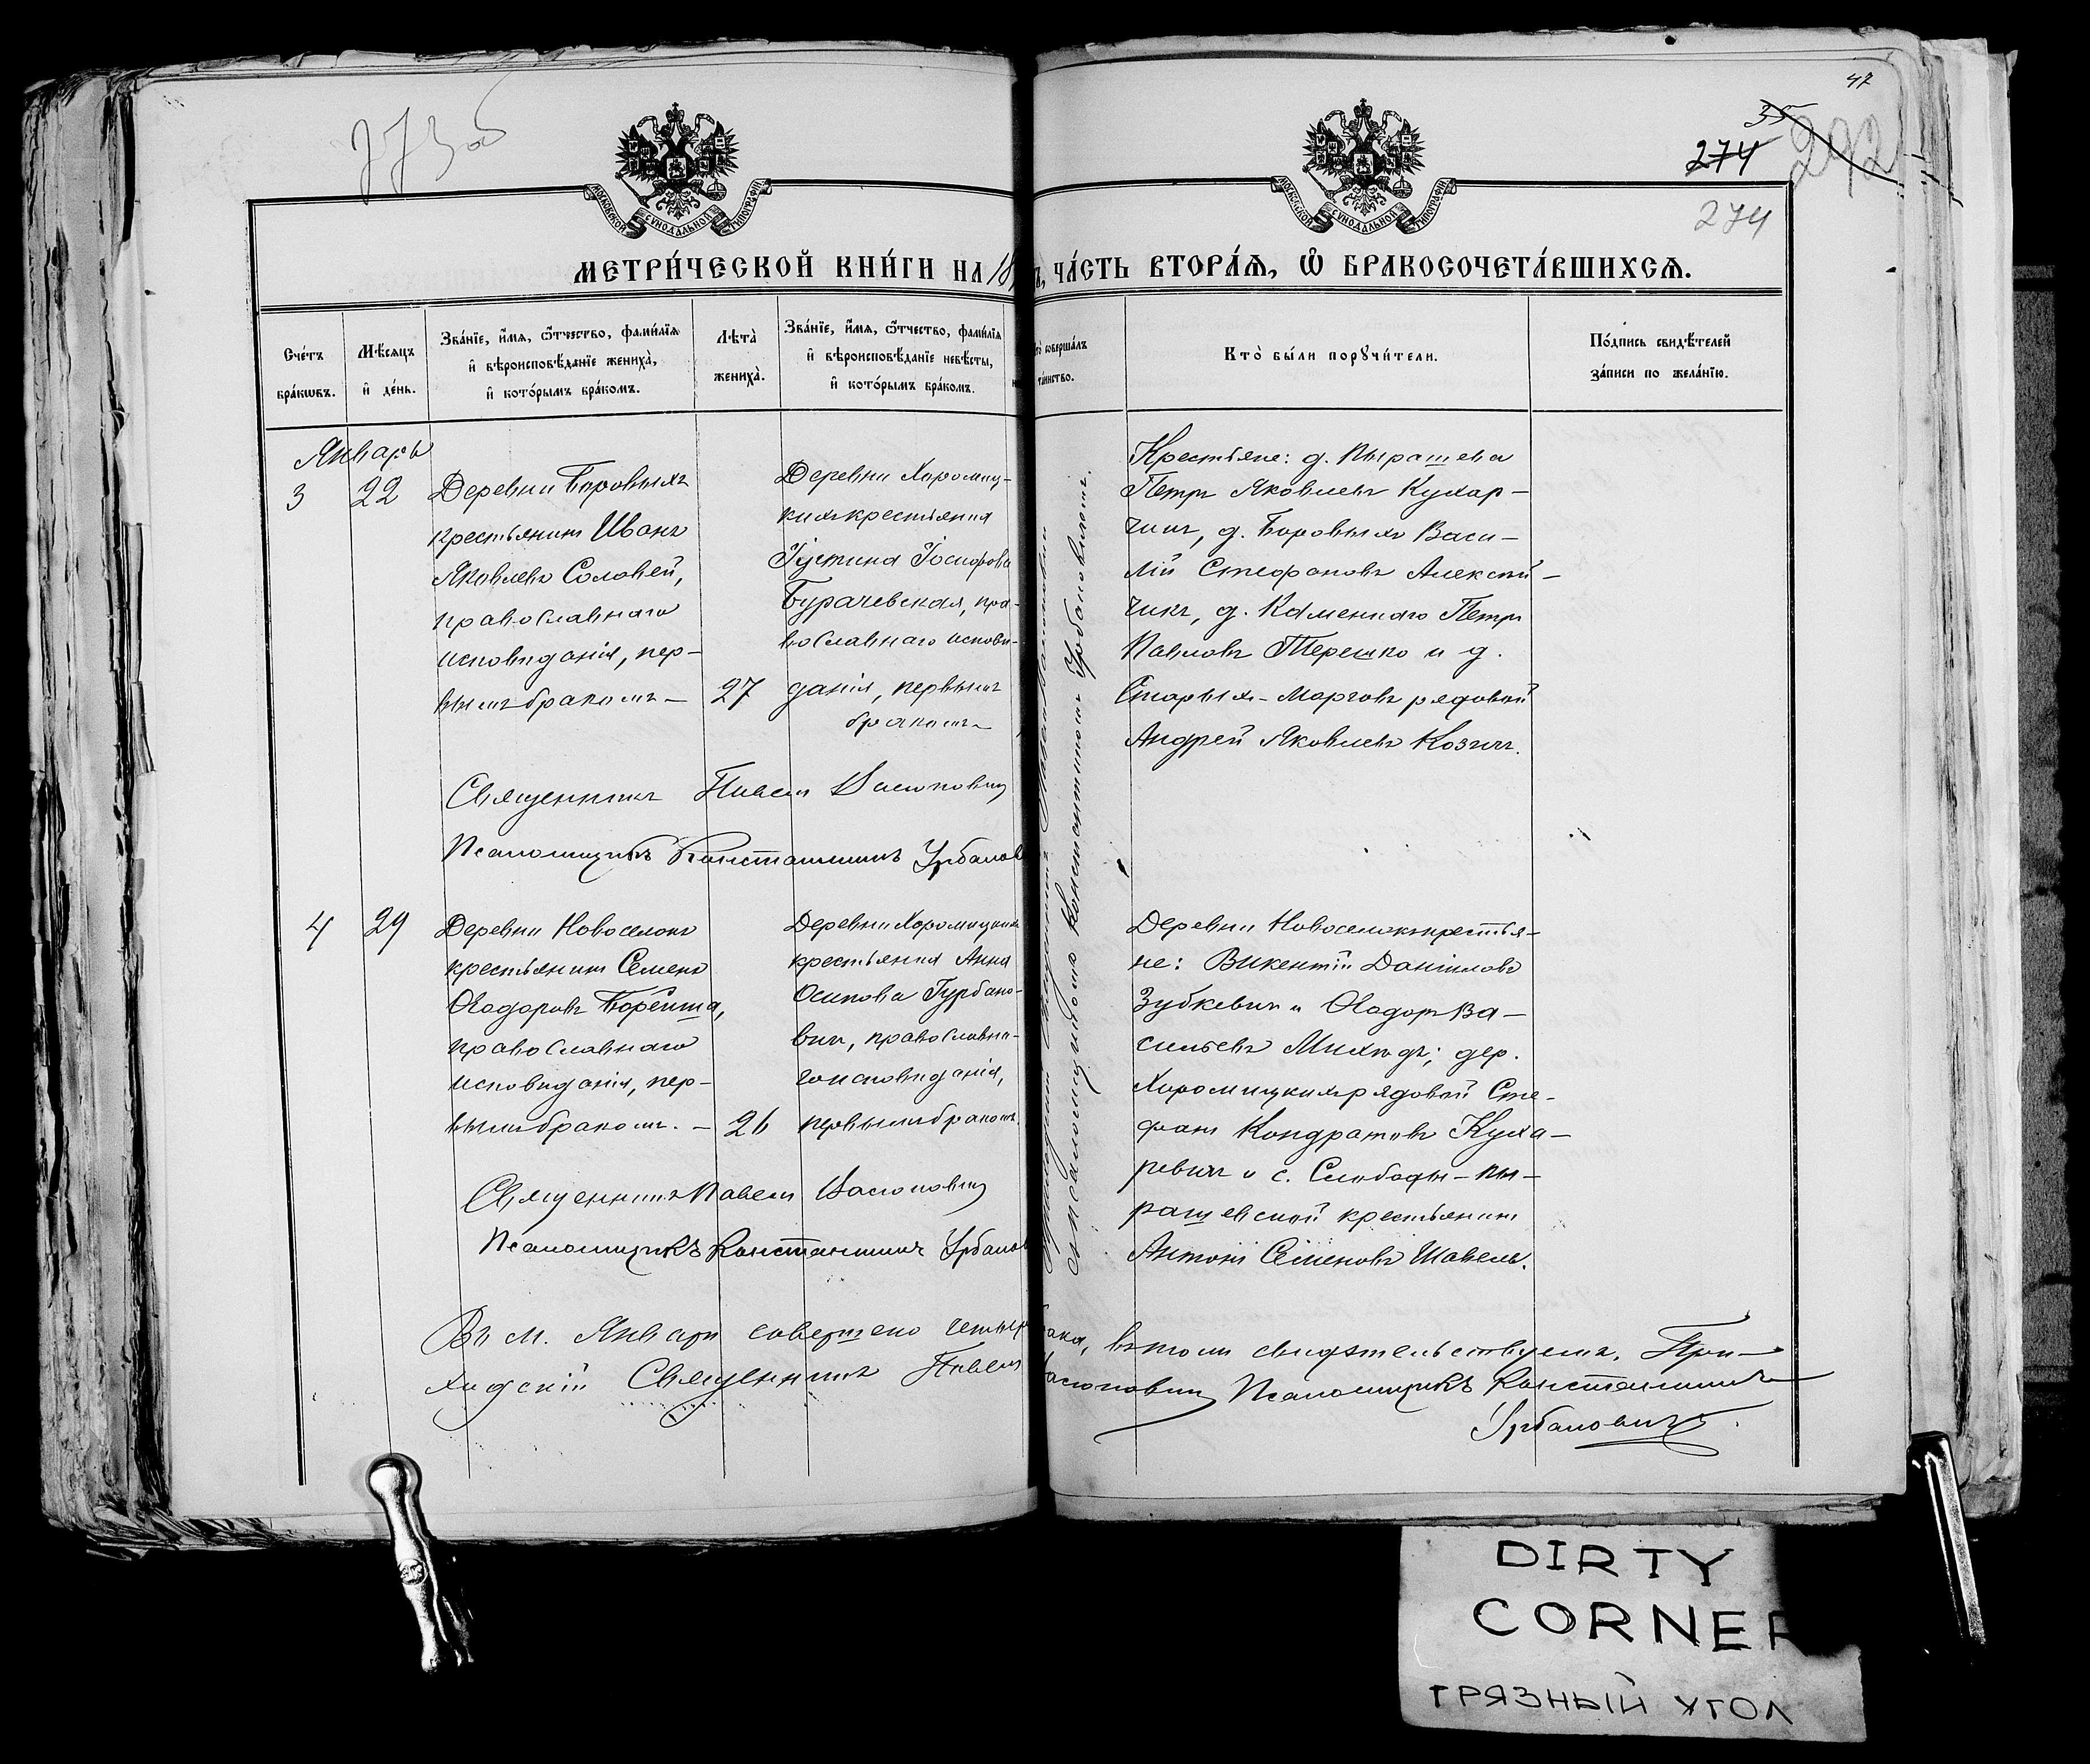 273 об
47
35
274
292
274
МОСКОВСКОЙ СѴНОДАЛЬНОЙ ТИПОГРАФІИ
МОСКОВСКОЙ СѴНОДАЛЬНОЙ ТИПОГРАФІИ
МЕТРИ́ЧЕСКОЙ КНИ́ГИ НА 18
Ъ, ЧА́СТЬ ВТОРА́Я, Ѽ БРАКОСОЧЕТА́ВШИХСЯ.
Сче́тъ бра́кѡвъ.
Мѣ́сяцъ и҆ де́нь.
Зва́нїе, и҆́мя, ѻ҆́тчество, фами́лїя и҆ вѣроисповѣ́данїе жениха̀, и҆ кото́рымъ бра́комъ.
Лѣта̀ жениха̀.
Зва́нїе, и҆́мя, ѻ҆́тчество, фами́лїя и҆ вѣроисповѣ́данїе невѣ́сты, и҆ кото́рымъ бра́комъ.
то̀ соверша́лъ
та́инство.
Кто̀ бы́ли порꙋчи́тели.
По́дпись свидѣ́телей за́писи по жела́нїю.
Январь
3
22
Деревни Боровыхъ
крестьянинъ Иванъ
Яковлевъ Соловей,
православнаго
исповѣданія, пер-
вымъ бракомъ —
27
Деревни Хоромиц-
кихъ крестьянка
Іустина Іосифова
Бурачевская, пра-
вославнаго исповѣ-
данія, первымъ
бракомъ
Крестьяне: д. Пырашева
Петръ Яковлевъ Кухар-
чикъ, д. Боровыхъ Васи-
лій Стефановъ Алексѣй-
чикъ, д. Каменнаго Петръ
Павловъ Терешко и д.
Старыхъ-Морговъ рядовой
Андрей Яковлевъ Козичъ.
Священникъ Павелъ Васюковичъ
Псаломщикъ Константинъ Урбанов
4
29
Деревни Новоселокъ
крестьянинъ Семенъ
Ѳеодоровъ Борейша,
православнаго
исповѣданія, пер-
вымъ бракомъ. —
26
Деревни Хоромицкихъ
крестьянка Анна
Осипова Гурбано-
вичъ, православна-
го исповѣданія,
первымъ бракомъ
съ псаломщикомъ Константиномъ Урбановичемъ.
Деревни Новоселокъ крестья-
не: Викентій Даніиловъ
Зубкевичъ и Ѳеодоръ Ва-
сильевъ Михедъ; дер.
Хоромицкихъ рядовой Сте-
фанъ Кондратовъ Куха-
ревичъ и с. Слободы-Пы-
рашевской крестьянинъ
Антоній Семеновъ Шавель.
Священникъ Павелъ Васюковичъ
Псаломщикъ Константинъ Урбанов
Въ м. Январѣ совершено четыр
рака, въ томъ свидѣтельствуемъ. При-
ходскій Священникъ Павелъ
Васюковичъ Псаломщикъ Константинъ
Урбановичъ.
DIRTY
CORNER
ГРЯЗНЫЙ УГОЛ